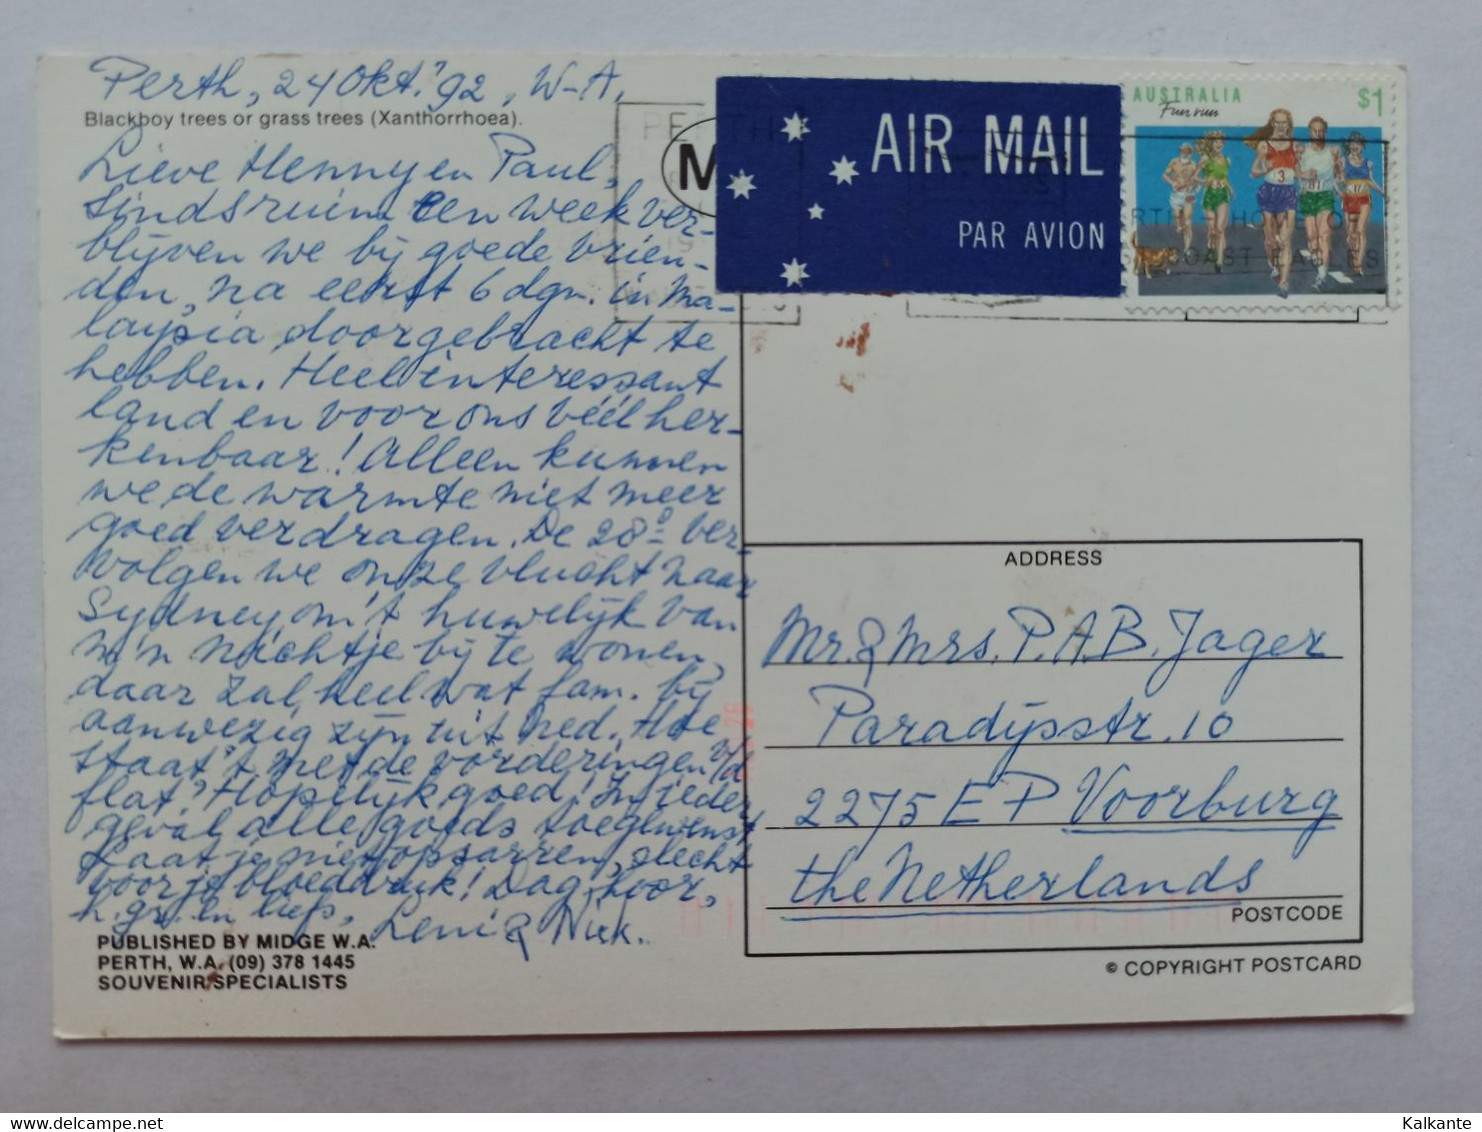 Perth, 24 Okt. '92, W-A,
Blackboy trees or grass trees (Xanthorrhoea).
Lieve Henny en Paul,
Sinds ruim een week ver-
blijven we bij goede vrien-
den, na eerst 6 dgn. in Ma-
laysia doorgebracht te
hebben. Heel interessant
land en voor ons véél her-
kenbaar! Alleen kunnen
we de warmte niet meer
goed verdragen. De 28e ver-
volgen we onze vlucht naar
Sydney, om 't huwelijk van
m'n nichtje bij te wonen,
daar zal heel wat fam. bij
aanwezig zijn uit Ned. Hoe
staat 't met de vorderingen v/d
flat? Hopelijk goed! In ieder
geval alle goeds toegewenst
Laat je niet opjarren, slecht
voor je bloeddruk! Dag, hoor,
h. gr. en liefs, Leni & Niek.
PUBLISHED BY MIDGE W.A.
PERTH, W.A. (09) 378 1445
SOUVENIR SPECIALISTS
PERTH
M
AIR MAIL
PAR AVION
AUSTRALIA $1
Fun run
3
81
HOME OF
COAST EAGLES
ADDRESS
Mr. & Mrs. P.A.B. Jager
Paradijsstr. 10
2275 EP Voorburg
the Netherlands
POSTCODE
© COPYRIGHT POSTCARD
Kalkante